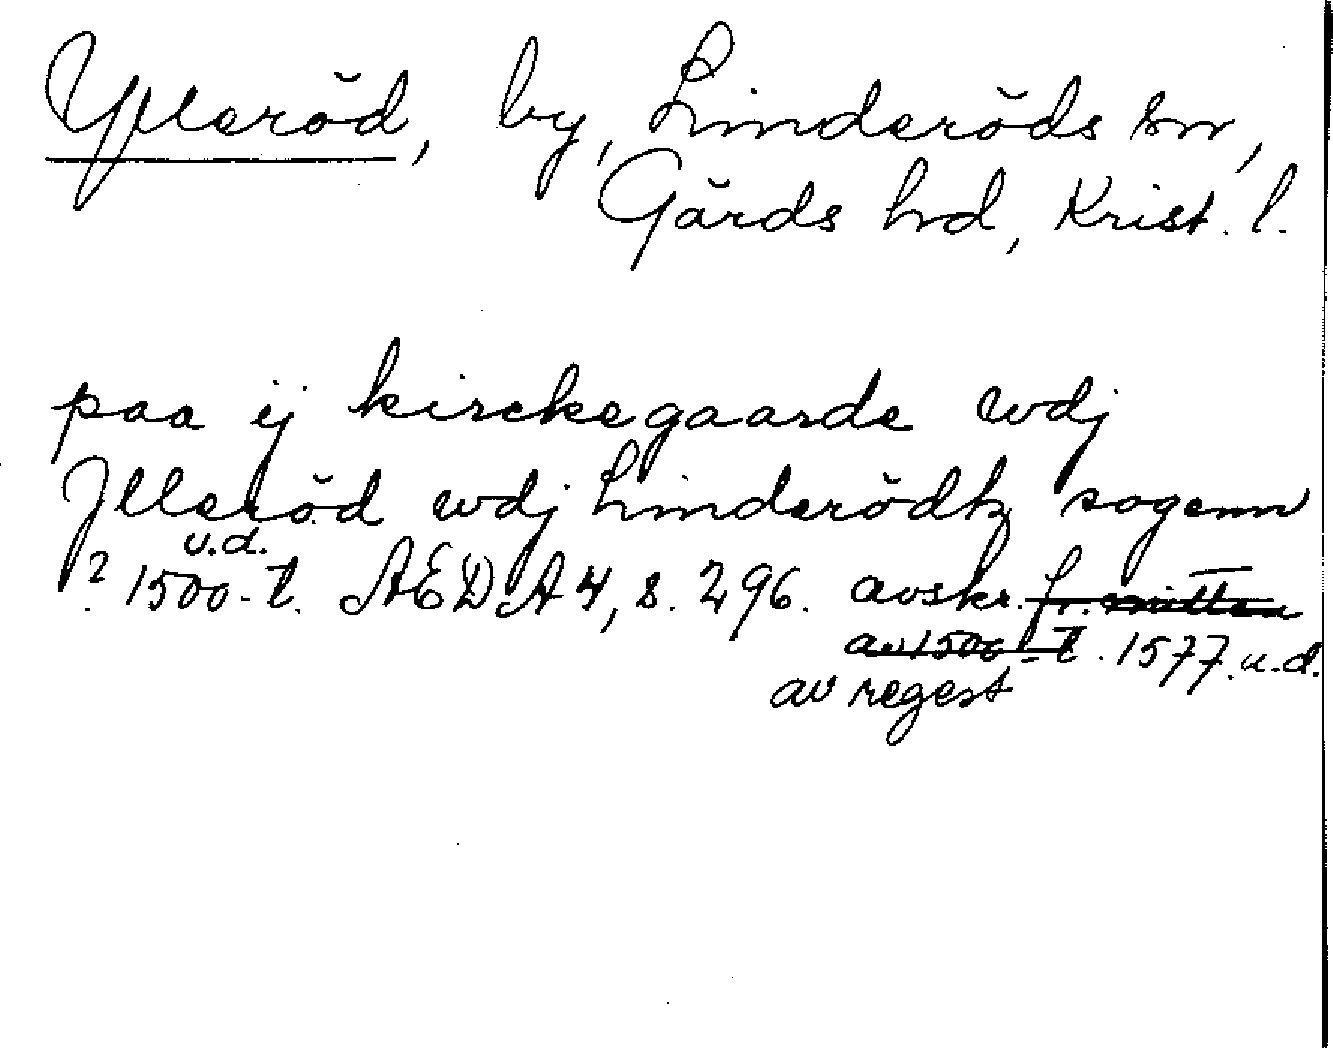 Ylleröd, by, Linderöds sn,
Gärds hd, Krist. l.
paa ij kirckegaarde wdj
Jlleröd wdj Linderödtz sogenn
u.d.
? 1500-t. ÆDA 4, s. 296. avskr. fr. mitten
av 1500-t. 1577 u.d.
av regest